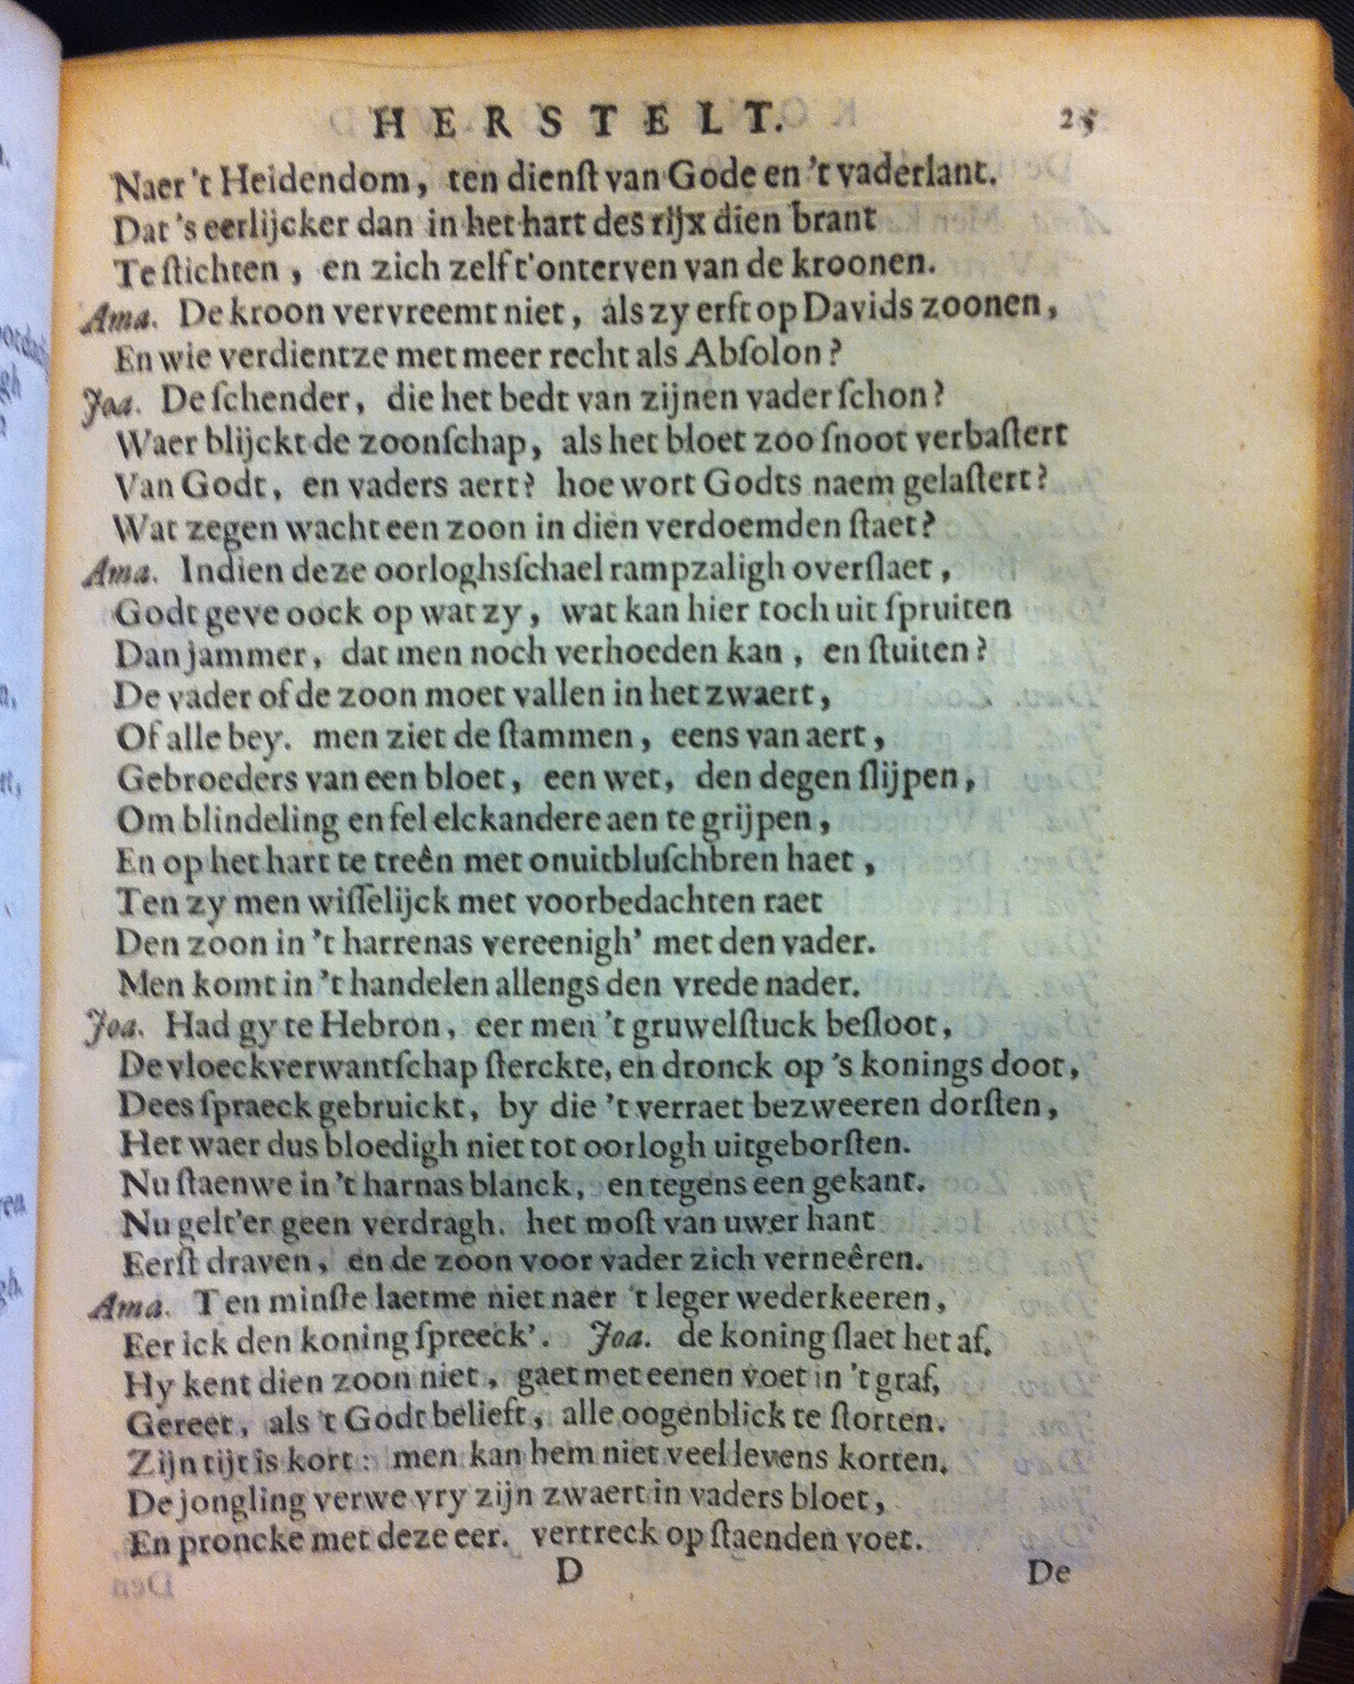 HERSTELT. 25
Naer 't Heidendom, ten dienſt van Gode en 't vaderlant.
Dat 's eerlijcker dan in het hart des rijx dien brant
Te ſtichten, en zich zelf t'onterven van de kroonen.
Ama. De kroon vervreemt niet, als zy erft op Davids zoonen,
En wie verdientze met meer recht als Abſolon?
Joa. De ſchender, die het bedt van zijnen vader ſchon?
Waer blijckt de zoonſchap, als het bloet zoo ſnoot verbaſtert
Van Godt, en vaders aert? hoe wort Godts naem gelaſtert?
Wat zegen wacht een zoon in dien verdoemden ſtaet?
Ama. Indien deze oorloghsſchael rampzaligh overſlaet,
Godt geve oock op wat zy, wat kan hier toch uit ſpruiten
Dan jammer, dat men noch verhoeden kan, en ſtuiten?
De vader of de zoon moet vallen in het zwaert,
Of alle bey. men ziet de ſtammen, eens van aert,
Gebroeders van een bloet, een wet, den degen ſlijpen,
Om blindeling en fel elckandere aen te grijpen,
En op het hart te treên met onuitbluſchbren haet,
Ten zy men wiſſelijck met voorbedachten raet
Den zoon in 't harrenas vereenigh' met den vader.
Men komt in 't handelen allengs den vrede nader.
Joa. Had gy te Hebron, eer men 't gruwelſtuck beſloot,
De vloeckverwantſchap ſterckte, en dronck op 's konings doot,
Dees ſpraeck gebruickt, by die 't verraet bezweeren dorſten,
Het waer dus bloedigh niet tot oorlogh uitgeborſten.
Nu ſtaenwe in 't harnas blanck, en tegens een gekant.
Nu gelt'er geen verdragh. het moſt van uwer hant
Eerſt draven, en de zoon voor vader zich verneêren.
Ama. Ten minſte laetme niet naer 't leger wederkeeren,
Eer ick den koning ſpreeck'. Joa. de koning ſlaet het af.
Hy kent dien zoon niet, gaet met eenen voet in 't graf,
Gereet, als 't Godt belieft, alle oogenblick te ſtorten.
Zijn tijt is kort: men kan hem niet veel levens korten.
De jongling verwe vry zijn zwaert in vaders bloet,
En proncke met deze eer. vertreck op ſtaenden voet.
D De